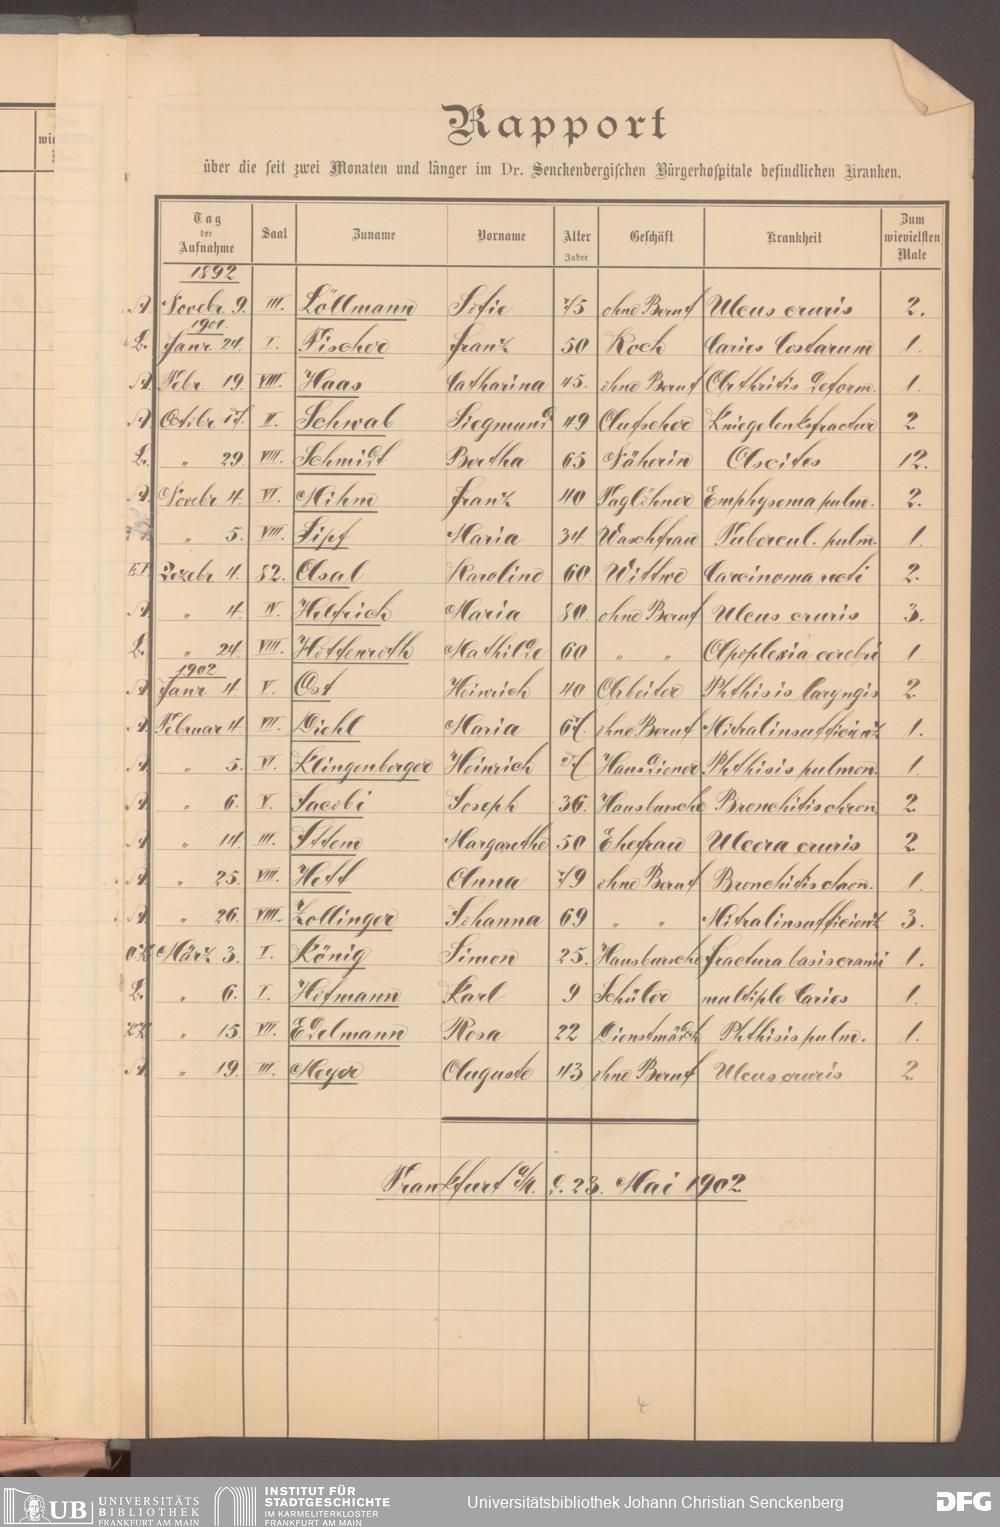 Rapport
über die seit zwei Monaten und länger im Dr. Senckenbergischen Bürgerhospitale befindlichen Kranken.
Tag der Aufnahme Saal Zuname Vorname Alter Jahre Geschäft Krankheit Zum wievielsten Male
1892
A. Novebr. 9. III. Löllmann Sofie 75 ohne Beruf Ulcus cruris 2.
1901.
L. Janr. 24. I. Fischer Franz 50 Koch Caries Costarum 1.
A. Febr. 19. VIII. Haas Catharina 45. ohne Beruf Arthritis deform. 1.
A. Octibr. 17. II. Schwab Siegmund 49 Aufseher Kniegelenksfractur 2
L. " 29. VIII. Schmidt Bertha 65 Näherin Ascites 12.
A. Novebr. 4. VI. Mihm Franz 40 Taglöhner Emphysema pulm. 2.
" 5. VIII. Lipf Maria 34. Waschfrau Tubercul. pulm. 1.
E.P. Dezebr. 4. 82. Asal Karoline 60. Wittwe Carcinoma recti 2.
A. " 4. IV. Helfrich Maria 80. ohne Beruf Ulcus cruris 3.
L. " 24. VIII. Hottenroth Mathilde 60 " " Apoplexia cerebri 1.
1902
A. Janr. 4. V. Ost Heinrich 40 Arbeiter Phthisis laryngis 2
A. Februar 4. VII. Diehl Maria 67. ohne Beruf Mitralinsufficienz 1.
A. " 5. VI. Klingenberger Heinrich 27 Hausdiener Phthisis pulmon. 1.
A. " 6. V. Jacobi Joseph 36. Hausbursche Bronchitis chron. 2
A. " 14. III. Ittem Margarethe 50 Ehefrau Ulcera cruris 2
A. " 25. VIII. Hett Anna 79 ohne Beruf Bronchitis chron. 1.
A. " 26. VIII. Zollinger Johanna 69 " " Mitralinsufficienz 3.
März 3. I. König Simon 25. Hausbursche Fractura basis cranii 1.
L. " 6. I. Hofmann Karl 9 Schüler multiple Caries 1.
" 15. VII. Edelmann Rosa 22 Dienstmädch Phthisis pulm. 1.
A. " 19. III. Meyer Auguste 43 ohne Beruf Ulcus cruris 2
Frankfurt a/M. d. 23. Mai 1902
UB UNIVERSITÄTS BIBLIOTHEK FRANKFURT AM MAIN
INSTITUT FÜR STADTGESCHICHTE IM KARMELITERKLOSTER FRANKFURT AM MAIN
Universitätsbibliothek Johann Christian Senckenberg
DFG